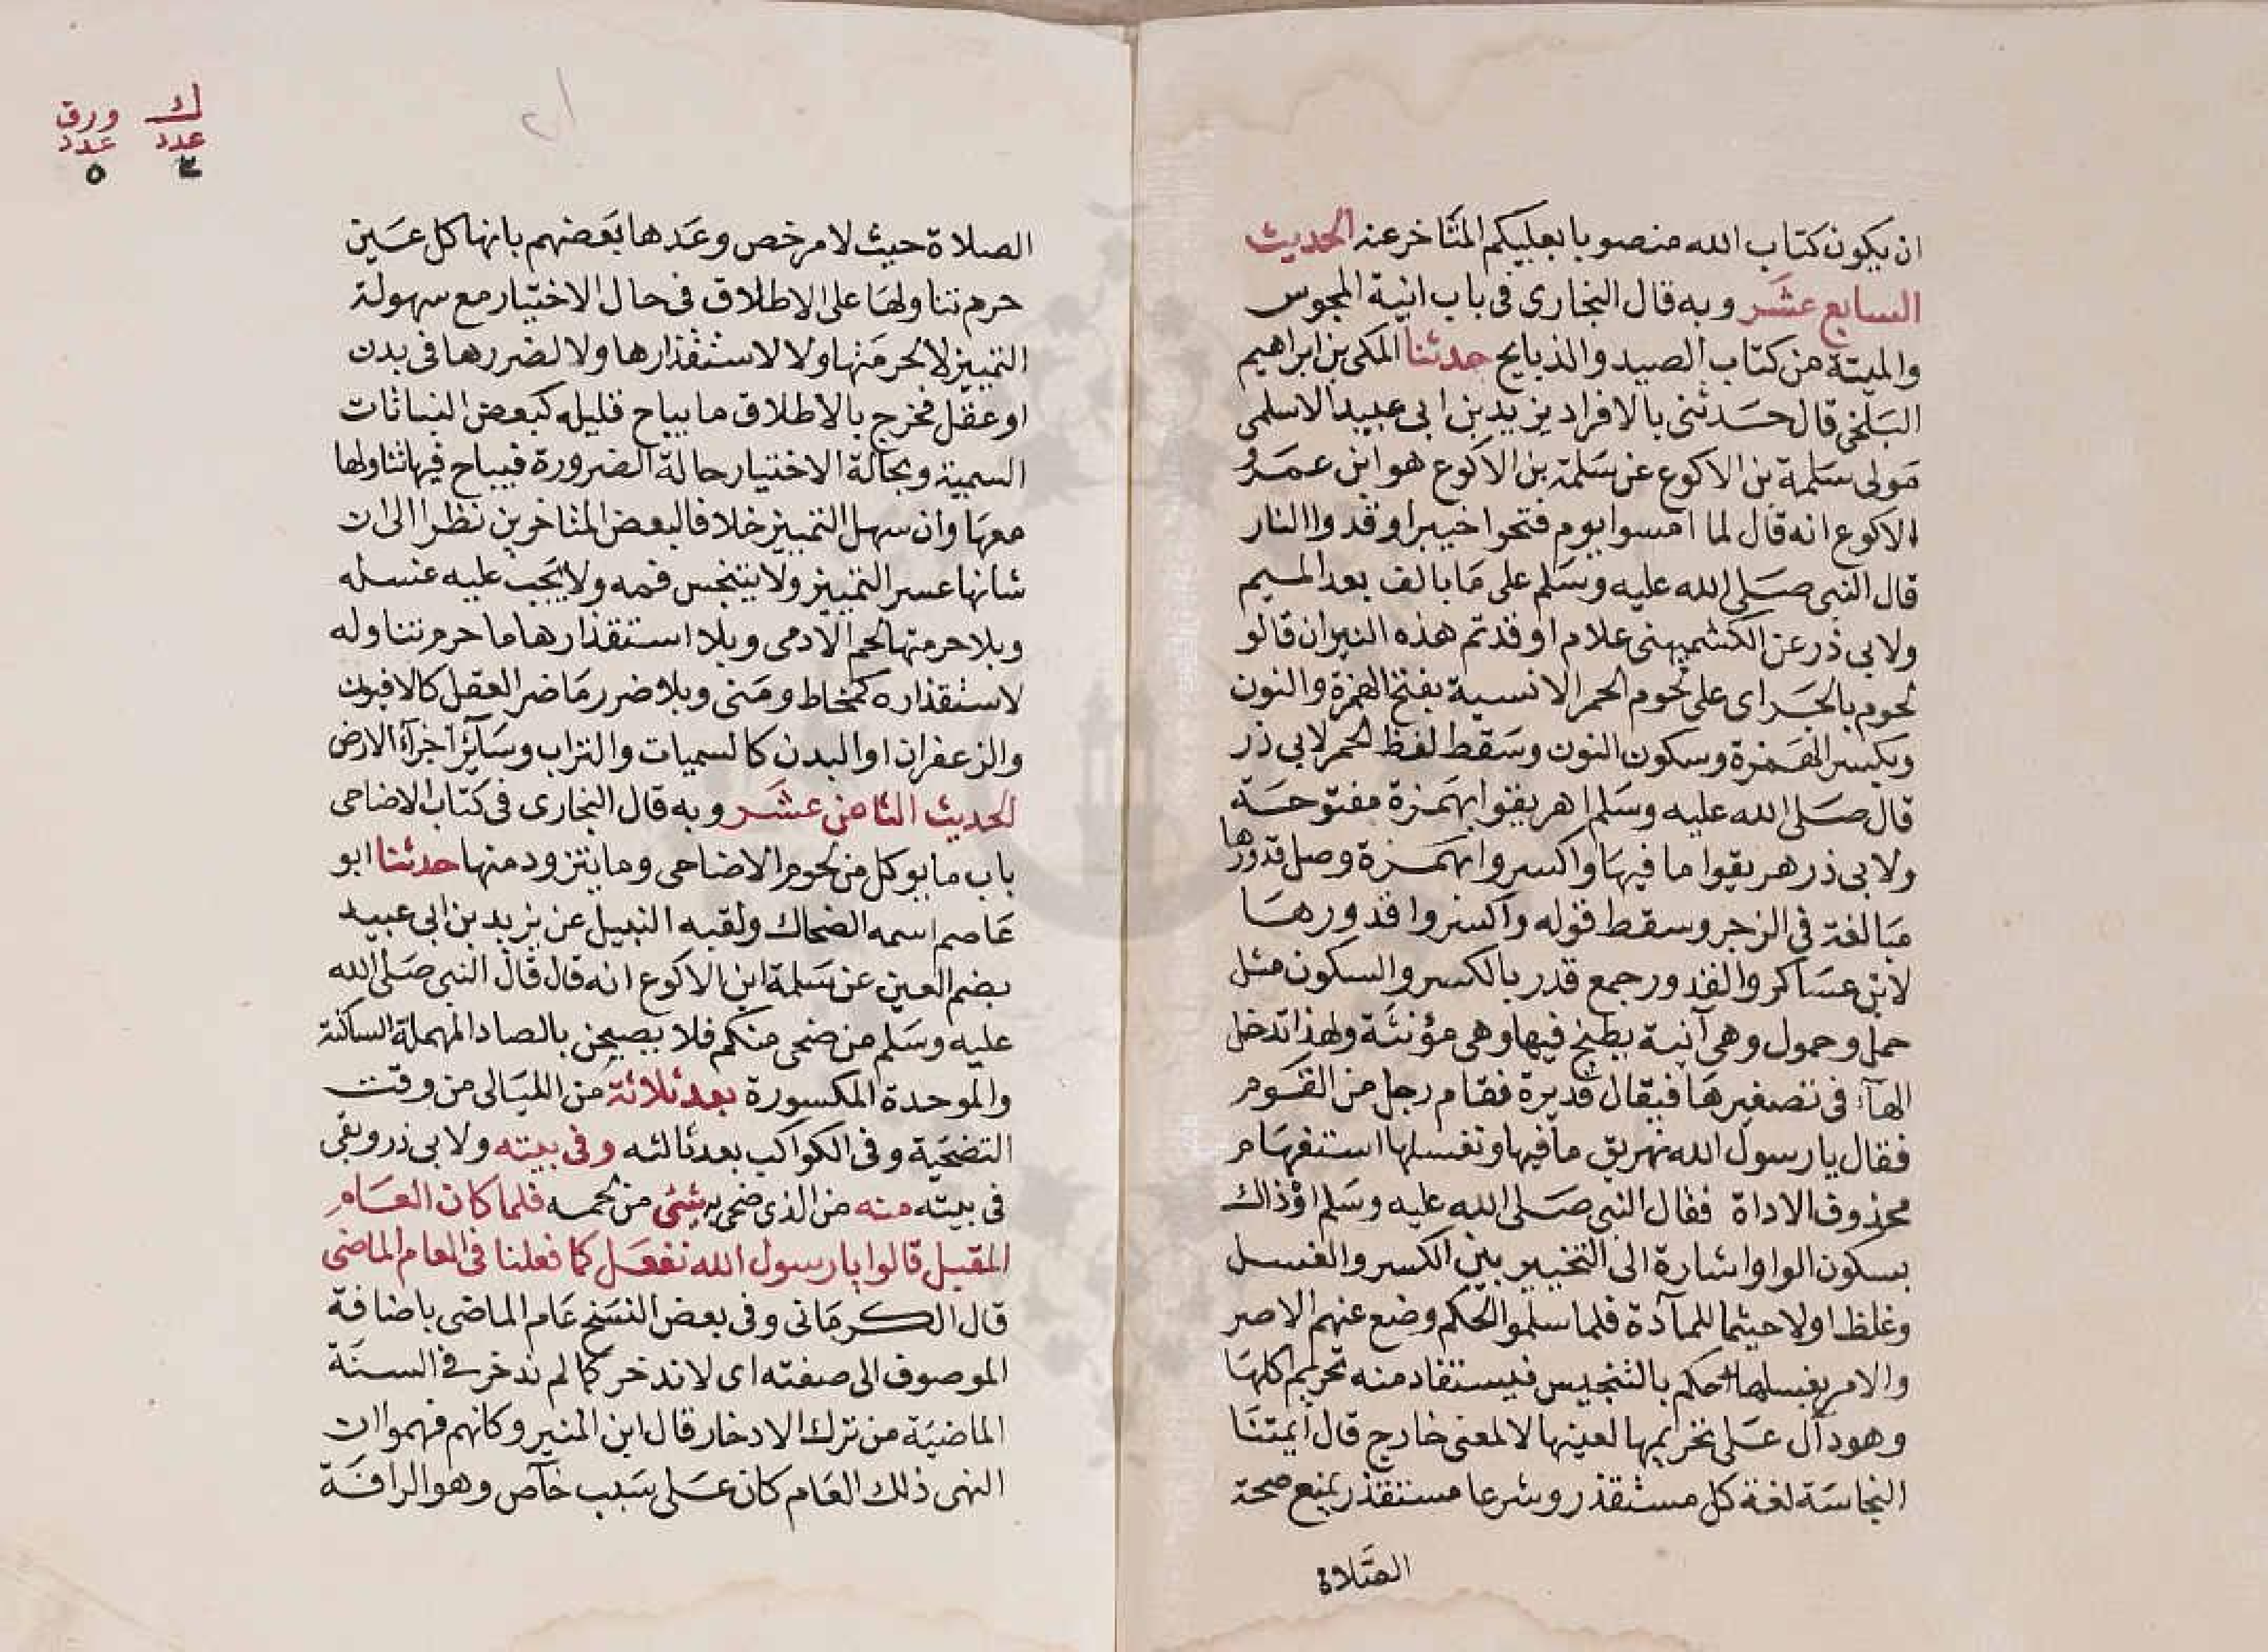 ان يكون كتاب الله منصوبا بعليكم المتأخر عنه الحديث
السابع عشر وبه قال البخارى فى باب انية المجوس
والميتة من كتاب الصيد والذبايح حدثنا المكى بن ابراهيم
البلخى قال حدثنى بالافراد يزيد بن ابى عبيد الاسلمى
مولى سلمة بن الاكوع عن سلمة بن الاكوع هو ابن عمرو
الاكوع انه قال لما امسوا يوم فتحوا خيبرا وقدوا النار
قال النبى صلى الله عليه وسلم على ما بالف بعد الميم
ولابي ذر عن الكشميهنى علام اوقدتم هذه النيران قالو
لحوم بالجر اى على لحوم الحمر الانسية بفتح الهمزة والنون
وبكسر الهمزة وسكون النون وسقط لفظ الحمر لابي ذر
قال صلى الله عليه وسلم اهريقوا بهمزة مفتوحة
ولابى ذر هريقوا ما فيها واكسروا بهمزة وصل قدورها
مبالغة في الزجر وسقط قوله واكسروا قدورها
لابن عساكر والقدور جمع قدر بالكسر والسكون مثل
حمل وحمول وهى آنية يطبخ فيها وهى مؤنثة ولهذا تدخل
الهآء فى تصغيرها فيقال قديرة فقام رجل من القوم
فقال يا رسول الله نهريق ما فيها ونغسلها استفهام
محذوف الاداة فقال النبى صلى الله عليه وسلم اوذاك
بسكون الواو اشارة الى التخيير بين الكسر والغسل
وغلظ اولا حيثما للمآدة فلما سلموا الحكم وضع عنهم الاصر
والامر بغسلها حكم بالتنجيس فيستفاد منه تحريم اكلها
وهو دآل على تحريمها لعينها لا لمعنى خارج قال ايمتنا
النجاسة لغة كل مستقذر وشرعا مستقذر يمنع صحة
الصلاة
ك ورق
عدد عدد
٣ ٥
الصلاة حيث لا مرخص وعدها بعضهم بانها كل عين
حرم تناولها على الاطلاق فى حال الاختيار مع سهولة
التمييز لا لحرمتها ولا لاستقذارها ولا لضررها فى بدن
او عقل فخرج بالاطلاق ما يباح قليله كبعض النباتات
السمية وبحالة الاختيار حالة الضرورة فيباح فيها تناولها
معها وان سهل التمييز خلافا لبعض المتاخرين نظرا الى ان
شانها عسر التمييز ولا يتنجس فمه ولا يجب عليه غسله
وبلا حرمتها لحم الآدمى وبلا استقذارها ما حرم تناوله
لاستقذاره كمخاط ومنى وبلا ضرر ما ضر العقل كالافيون
والزعفران او البدن كالسميات والتراب وسآئر اجزآء الارض
الحديث الثامن عشر وبه قال البخارى فى كتاب الاضاحى
باب ما يوكل من لحوم الاضاحى وما يتزود منها حدثنا ابو
عاصم اسمه الضحاك ولقبه النبيل عن يزيد بن ابى عبيد
بضم العين عن سلمة ابن الاكوع انه قال قال النبى صلى الله
عليه وسلم من ضحى منكم فلا يصبحن بالصاد المهملة الساكنة
والموحدة المكسورة بعد ثلاثة من الليالى من وقت
التضحية وفى الكواكب بعد ثالثه وفى بيته ولابى ذر وبقى
فى بيته منه من الذى ضحى به شئ من لحمه فلما كان العام
المقبل قالوا يا رسول الله نفعل كما فعلنا فى العام الماضى
قال الكرمانى وفى بعض النسخ عام الماضى باضافة
الموصوف الى صفته اى لا ندخر كما لم ندخر فى السنة
الماضية من ترك الادخار قال ابن المنير وكانهم فهموا ان
النهى ذلك العام كان على سبب خآص وهو الرافة